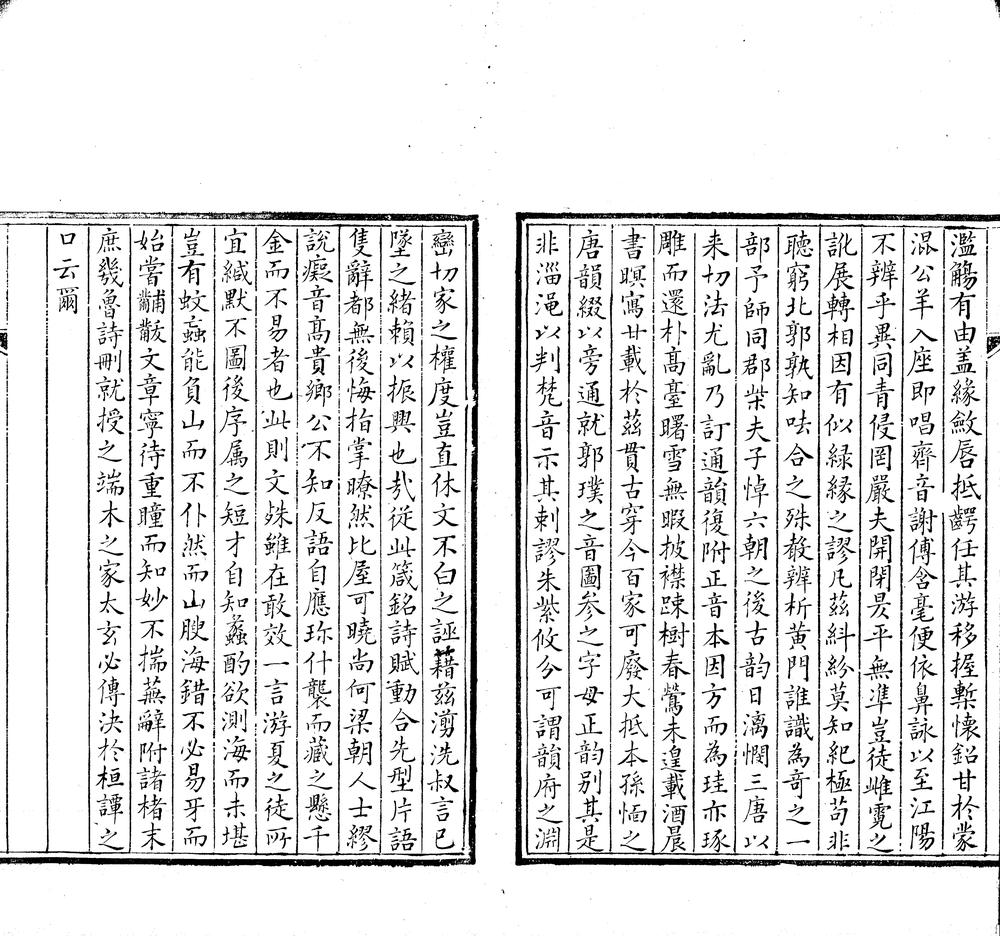 濫觴有由盖緣斂唇抵齶任其游移握槧懷鉛甘於蒙
混公羊入座即唱齊音謝傅含毫便依鼻詠以至江陽
不辨乎異同青侵罔嚴夫開閉昃平無準豈徒雌霓之
訛展轉相因有似緑縁之謬凡茲紏紛莫知紀極苟非
聽窮北郭孰知呿合之殊敎辨析黄門誰識為竒之一
部予師同郡柴夫子悼六朝之後古韵日漓憫三唐以
来切法尤亂乃訂通韻復附正音本因方而為珪亦琢
雕而還朴髙臺曙雪無暇披襟踈樹春鶯未遑載酒晨
書暝寫廿載於茲貫古穿今百家可廢大抵本孫愐之
唐韻綴以旁通就郭璞之音圖参之字母正韵别其是
非淄渑以判梵音示其刺謬朱紫攸分可謂韻府之淵
巒切家之權度豈直休文不白之誣藉茲湔洗叔言已
墜之緒賴以振興也㢤従此箴銘詩賦動合先型片語
隻辭都無後悔指掌瞭然比屋可曉尚何梁朝人士繆
說癡音髙貴鄉公不知反語自應珎什襲而藏之懸千
金而不易者也此則文㛸雖在敢效一言游夏之徒所
宜緘默不圖後序属之短才自知蠡酌欲測海而未堪
豈有蚊䖟能負山而不仆然而山膄海錯不必易牙而
始嘗黼黻文章寧待重瞳而知妙不揣蕪辭附諸楮末
庶㡬魯詩刪就授之端木之家太玄必傳決於桓譚之
口云爾